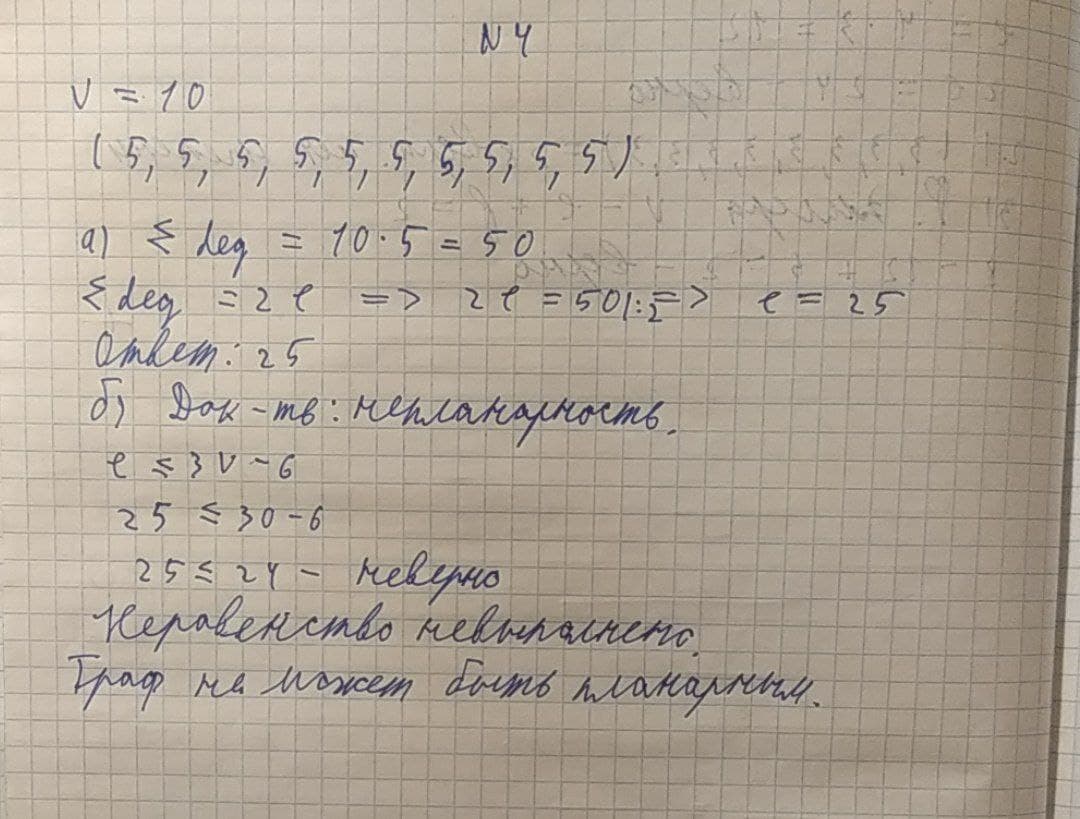 N 4
v = 10
(5, 5, 5, 5, 5, 5, 5, 5, 5, 5)
а) Σ deg = 10 · 5 = 50
Σ deg = 2e => 2e = 50 |:2 => e = 25
Ответ: 25
б) Док-тв: непланарность.
e ≤ 3v - 6
25 ≤ 30 - 6
25 ≤ 24 - неверно
Неравенство невыполнено.
Граф не может быть планарным.